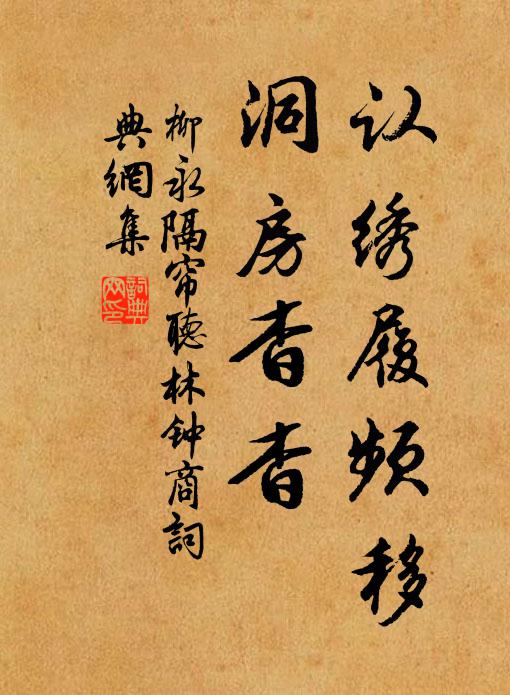 认绣履频移
洞房杳杳
柳永隔帘聽林钟商詞
典網集
詞典
网印